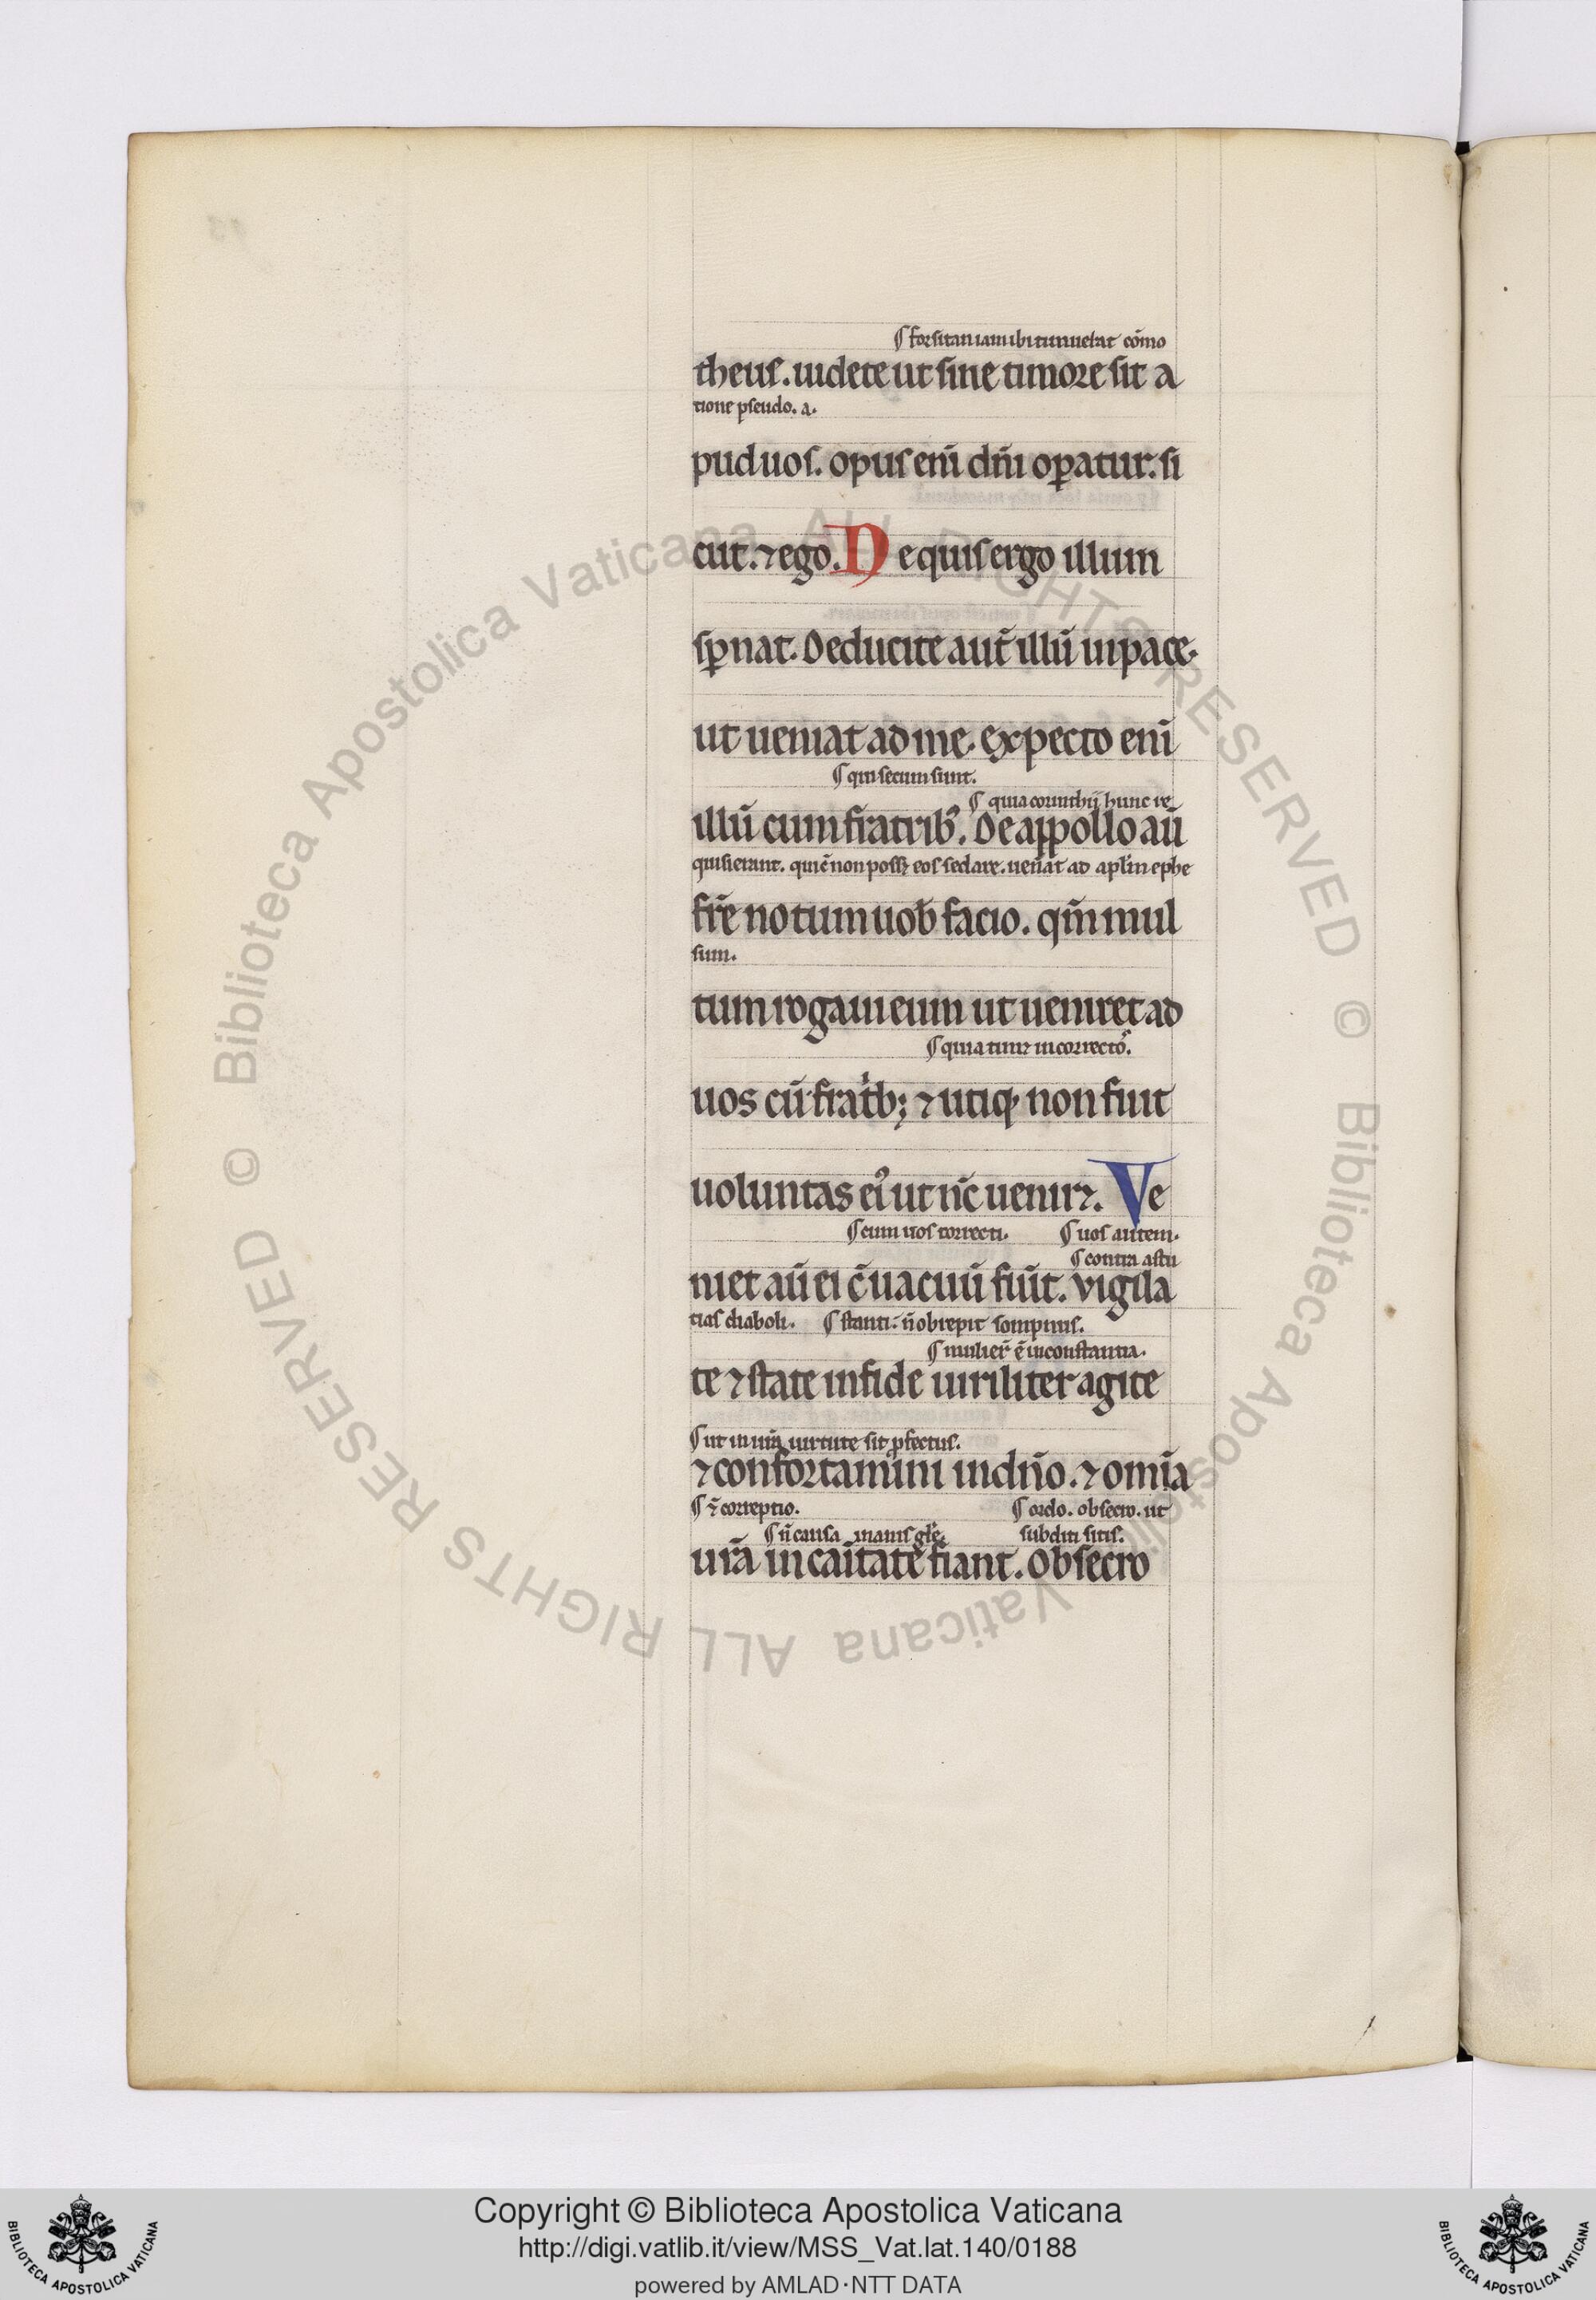 ¶ forsitan iam ibi tumuerat cōmo
theus. uidete ut sine timore sit a
tione pseudo. a.
pud uos. opus enī dn̄i oꝑatur. si
cut. ⁊ ego. Ne quis ergo illum
sꝑnat. Deducite aut̄ illū in pace.
ut ueniat ad me. expecto enī
¶ qui secum sunt.
¶ quia corinthii hunc re
illū cum fratribꝰ. De appollo aū
quisierant. qui c̄ non possꝫ eos sedare. uen̄at ad apl̄m ephe
fr̄e notum uob̄ facio. qm̄ mul
sum.
tum rogaui eum ut ueniret ad
¶ quia tim⁊ incorrectoꝰ.
uos cū fratͥbꝫ ⁊ utiqꝫ non fuit
uoluntas eiꝰ ut nc̄ uenir⁊. Ve
¶ cum uos correcti. ¶ uos autem.
¶ contra astu
niet aū ei c̄ uacuū fūit. vigila
tias diaboli. ¶ stanti. n̄ obrepit sompnus.
¶ mulieř ē inconstantia.
te ⁊ state in fide uiriliter agite
¶ ut in ur̄a uirtute sit ꝓfectus.
⁊ confortamini in dn̄o. ⁊ omīa
¶ ⁊̄ correptio. ¶ ordo. obsecro. ut
¶ n̄ causa inanis gl̄e. subditi sitis.
ur̄a in car̄itate fiant. Obsecro
Copyright © Biblioteca Apostolica Vaticana
http://digi.vatlib.it/view/MSS_Vat.lat.140/0188
powered by AMLAD·NTT DATA
BIBLIOTECA APOSTOLICA VATICANA
BIBLIOTECA APOSTOLICA VATICANA
© Biblioteca Apostolica Vaticana ALL RIGHTS RESERVED
© Biblioteca Apostolica Vaticana ALL RIGHTS RESERVED